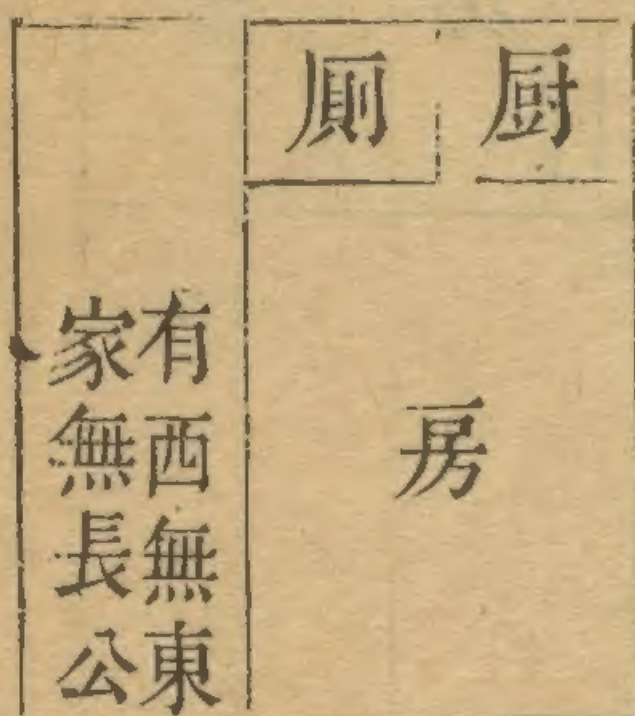 厨
厠
房
有西無東
家無長公